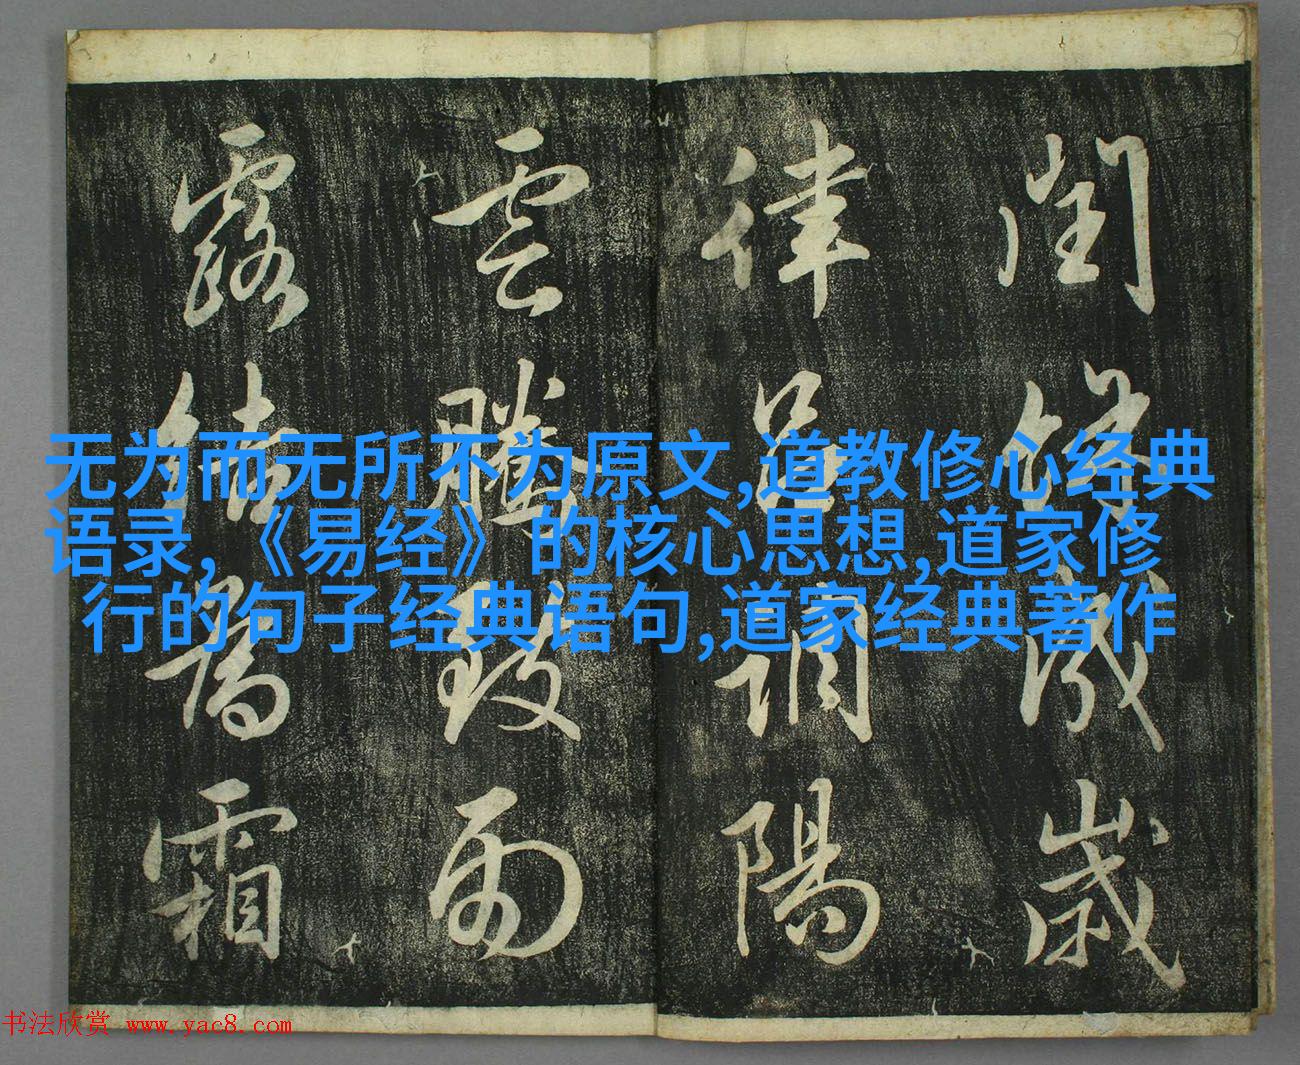 閏餘成歲
律呂調陽
雲騰致雨
露結為霜
无为而无所不为原文,道教修心经典
语录,《易经》的核心思想,道家修
行的句子经典语句,道家经典著作
书法欣赏 www.yac8.com